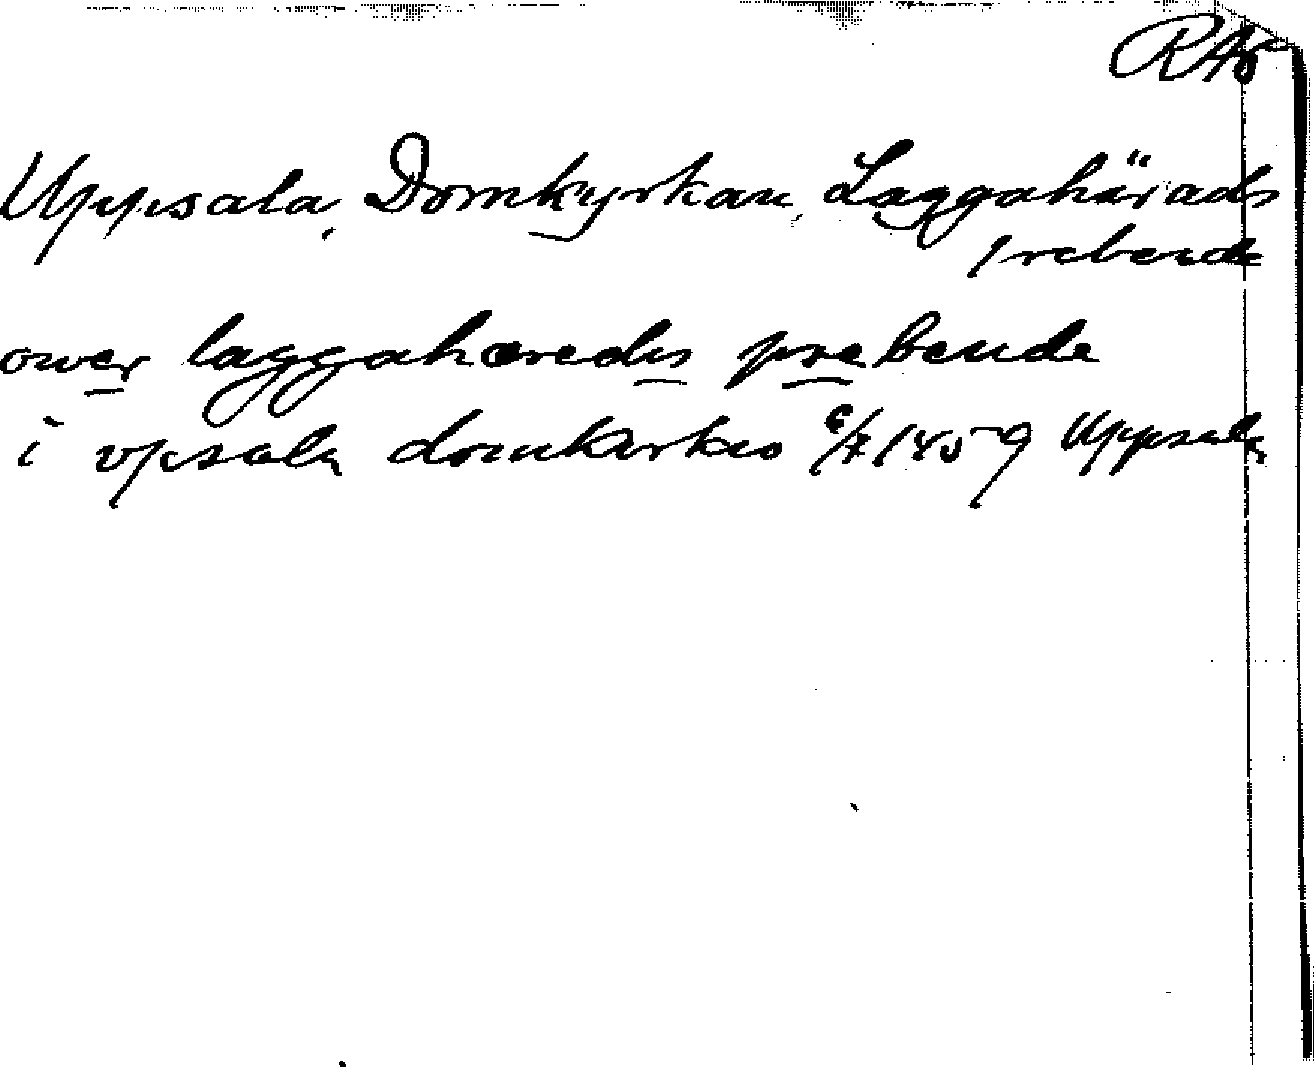 RAö
Uppsala, Domkyrkan, Laggahärads
prebende
ower laggahæredis prebende
i vpsala domkirkio 6/7 1459 Uppsala